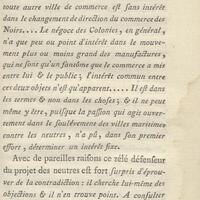 toute autre ville de commerce est sans intérêt
dans le changement de direction du commerce des
Noirs.... Le négoce des Colonies, en général,
n'a que peu ou point d'intérêt dans le mouve-
ment plus ou moins grand des manufactures,
qui ne sont qu'un fantôme que le commerce a mis
entre lui & le public; l'intérêt commun entre
ces deux objets n'est qu'apparent..... Il est dans
les termes & non dans les choses; & il ne peut
même y être, puisque la passion qui agit ouver-
tement dans le soulèvement des villes maritimes
contre les neutres, n'a pû, dans son premier
effort, déterminer un intérêt fixe.
Avec de pareilles raisons ce zélé défenseur
du projet des neutres est fort surpris d'éprou-
ver de la contradiction: il cherche lui-même des
objections & il n'en trouve point. A consulter